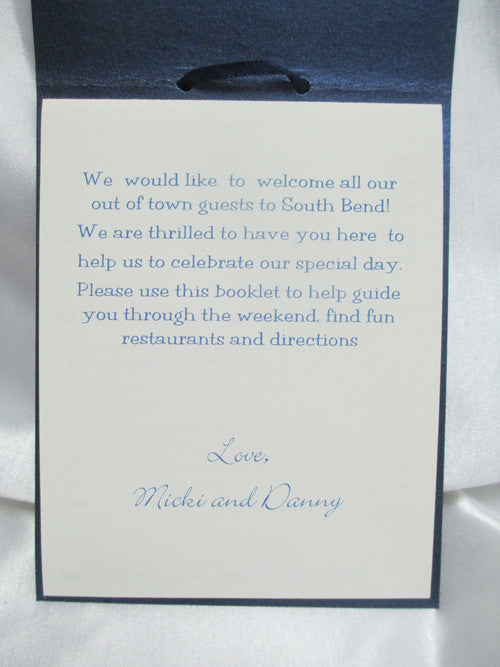 We would like to welcome all our
out of town guests to South Bend!
We are thrilled to have you here to
help us to celebrate our special day.
Please use this booklet to help guide
you through the weekend, find fun
restaurants and directions
Love,
Micki and Danny